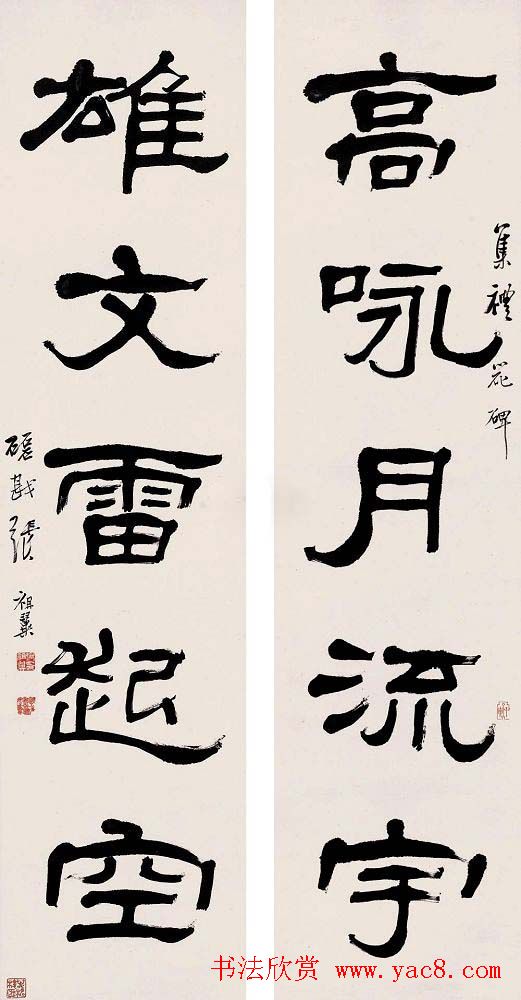 高咏月流宇
集禮器碑
雄文雷起空
磊戡張祖翼
书法欣赏 www.yac8.com